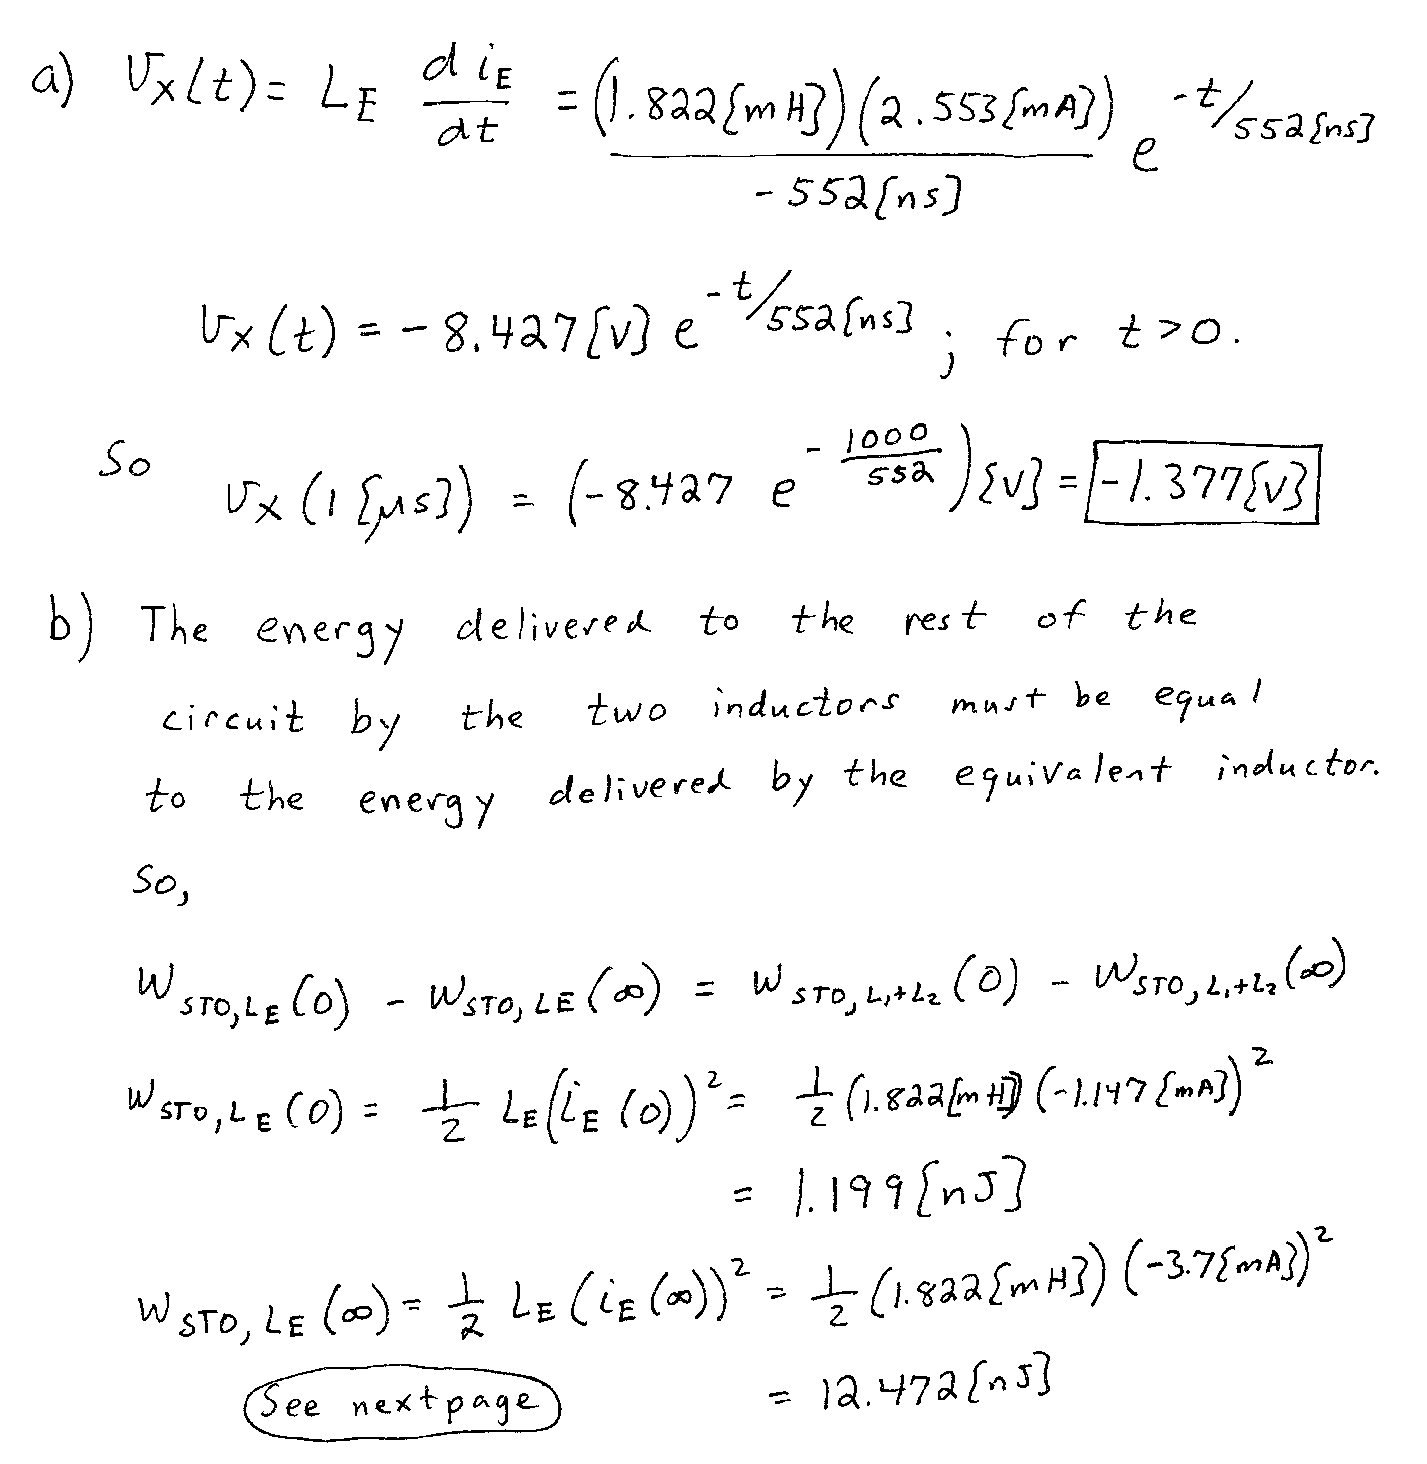 a) vx(t) = LE diE/dt = (1.822[mH])(2.553[mA])/-552[ns] e^-t/552[ns]
vx(t) = -8.427[V] e^-t/552[ns] ; for t>0.
So vx(1[μs]) = (-8.427 e^-1000/552)[V] = -1.377[V]
b) The energy delivered to the rest of the
circuit by the two inductors must be equal
to the energy delivered by the equivalent inductor.
So,
WSTO,LE(0) - WSTO,LE(∞) = WSTO,L1+L2(0) - WSTO,L1+L2(∞)
WSTO,LE(0) = 1/2 LE(iE(0))² = 1/2 (1.822[mH])(-1.147[mA])²
= 1.199[nJ]
WSTO,LE(∞) = 1/2 LE(iE(∞))² = 1/2 (1.822[mH])(-3.7[mA])²
= 12.472[nJ]
See next page